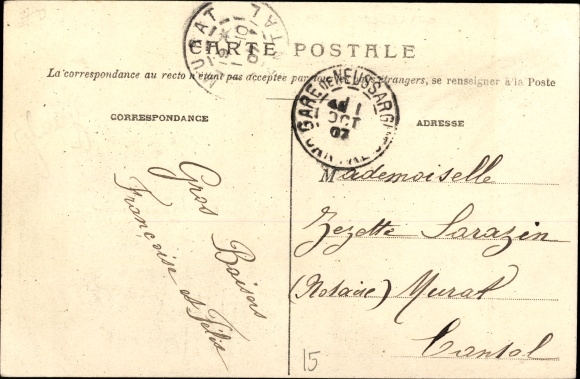 CARTE POSTALE
La correspondance au recto n'étant pas acceptée par tous les pays étrangers, se renseigner à la Poste
CORRESPONDANCE
ADRESSE
MURAT
CANTAL
GARE DE NEUSSARGUES
1
OCT
07
Gros Baisers
Françoise et Félix
Mademoiselle
Zezette Sarazin
(Notaire) Murat
Cantal
15